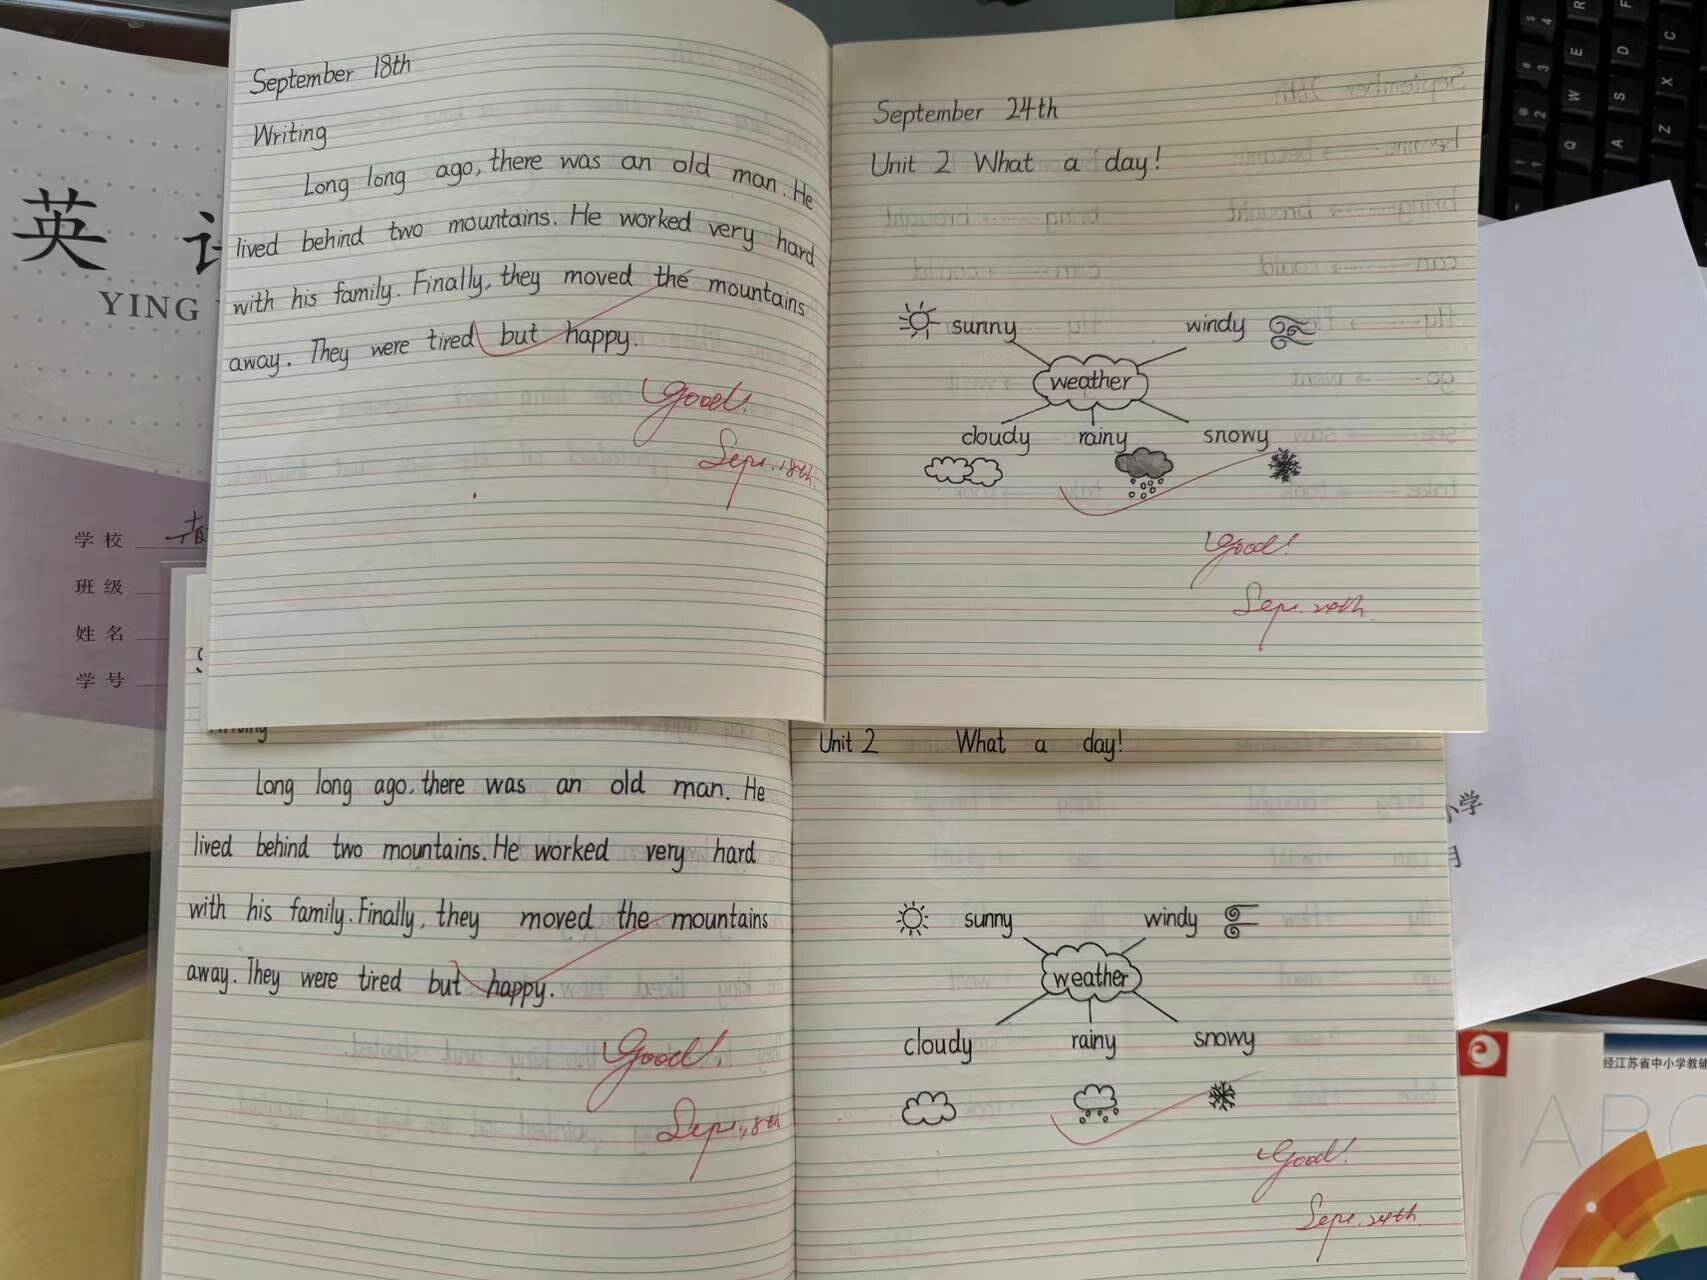 September 18th
Writing
Long long ago, there was an old man. He
lived behind two mountains. He worked very hard
with his family. Finally, they moved the mountains
away. They were tired but happy.
Good!
Sept. 18th.
September 24th
Unit 2 What a day!
sunny windy
weather
cloudy rainy snowy
Good!
Sept. 24th.
英
YING
学校
班级
姓名
学号
Long long ago, there was an old man. He
lived behind two mountains. He worked very hard
with his family. Finally, they moved the mountains
away. They were tired but happy.
Good!
Sept. 18th
Unit 2 What a day!
sunny windy
weather
cloudy rainy snowy
Good!
Sept. 24th.
小学
月
经江苏省中小学教辅
ABC